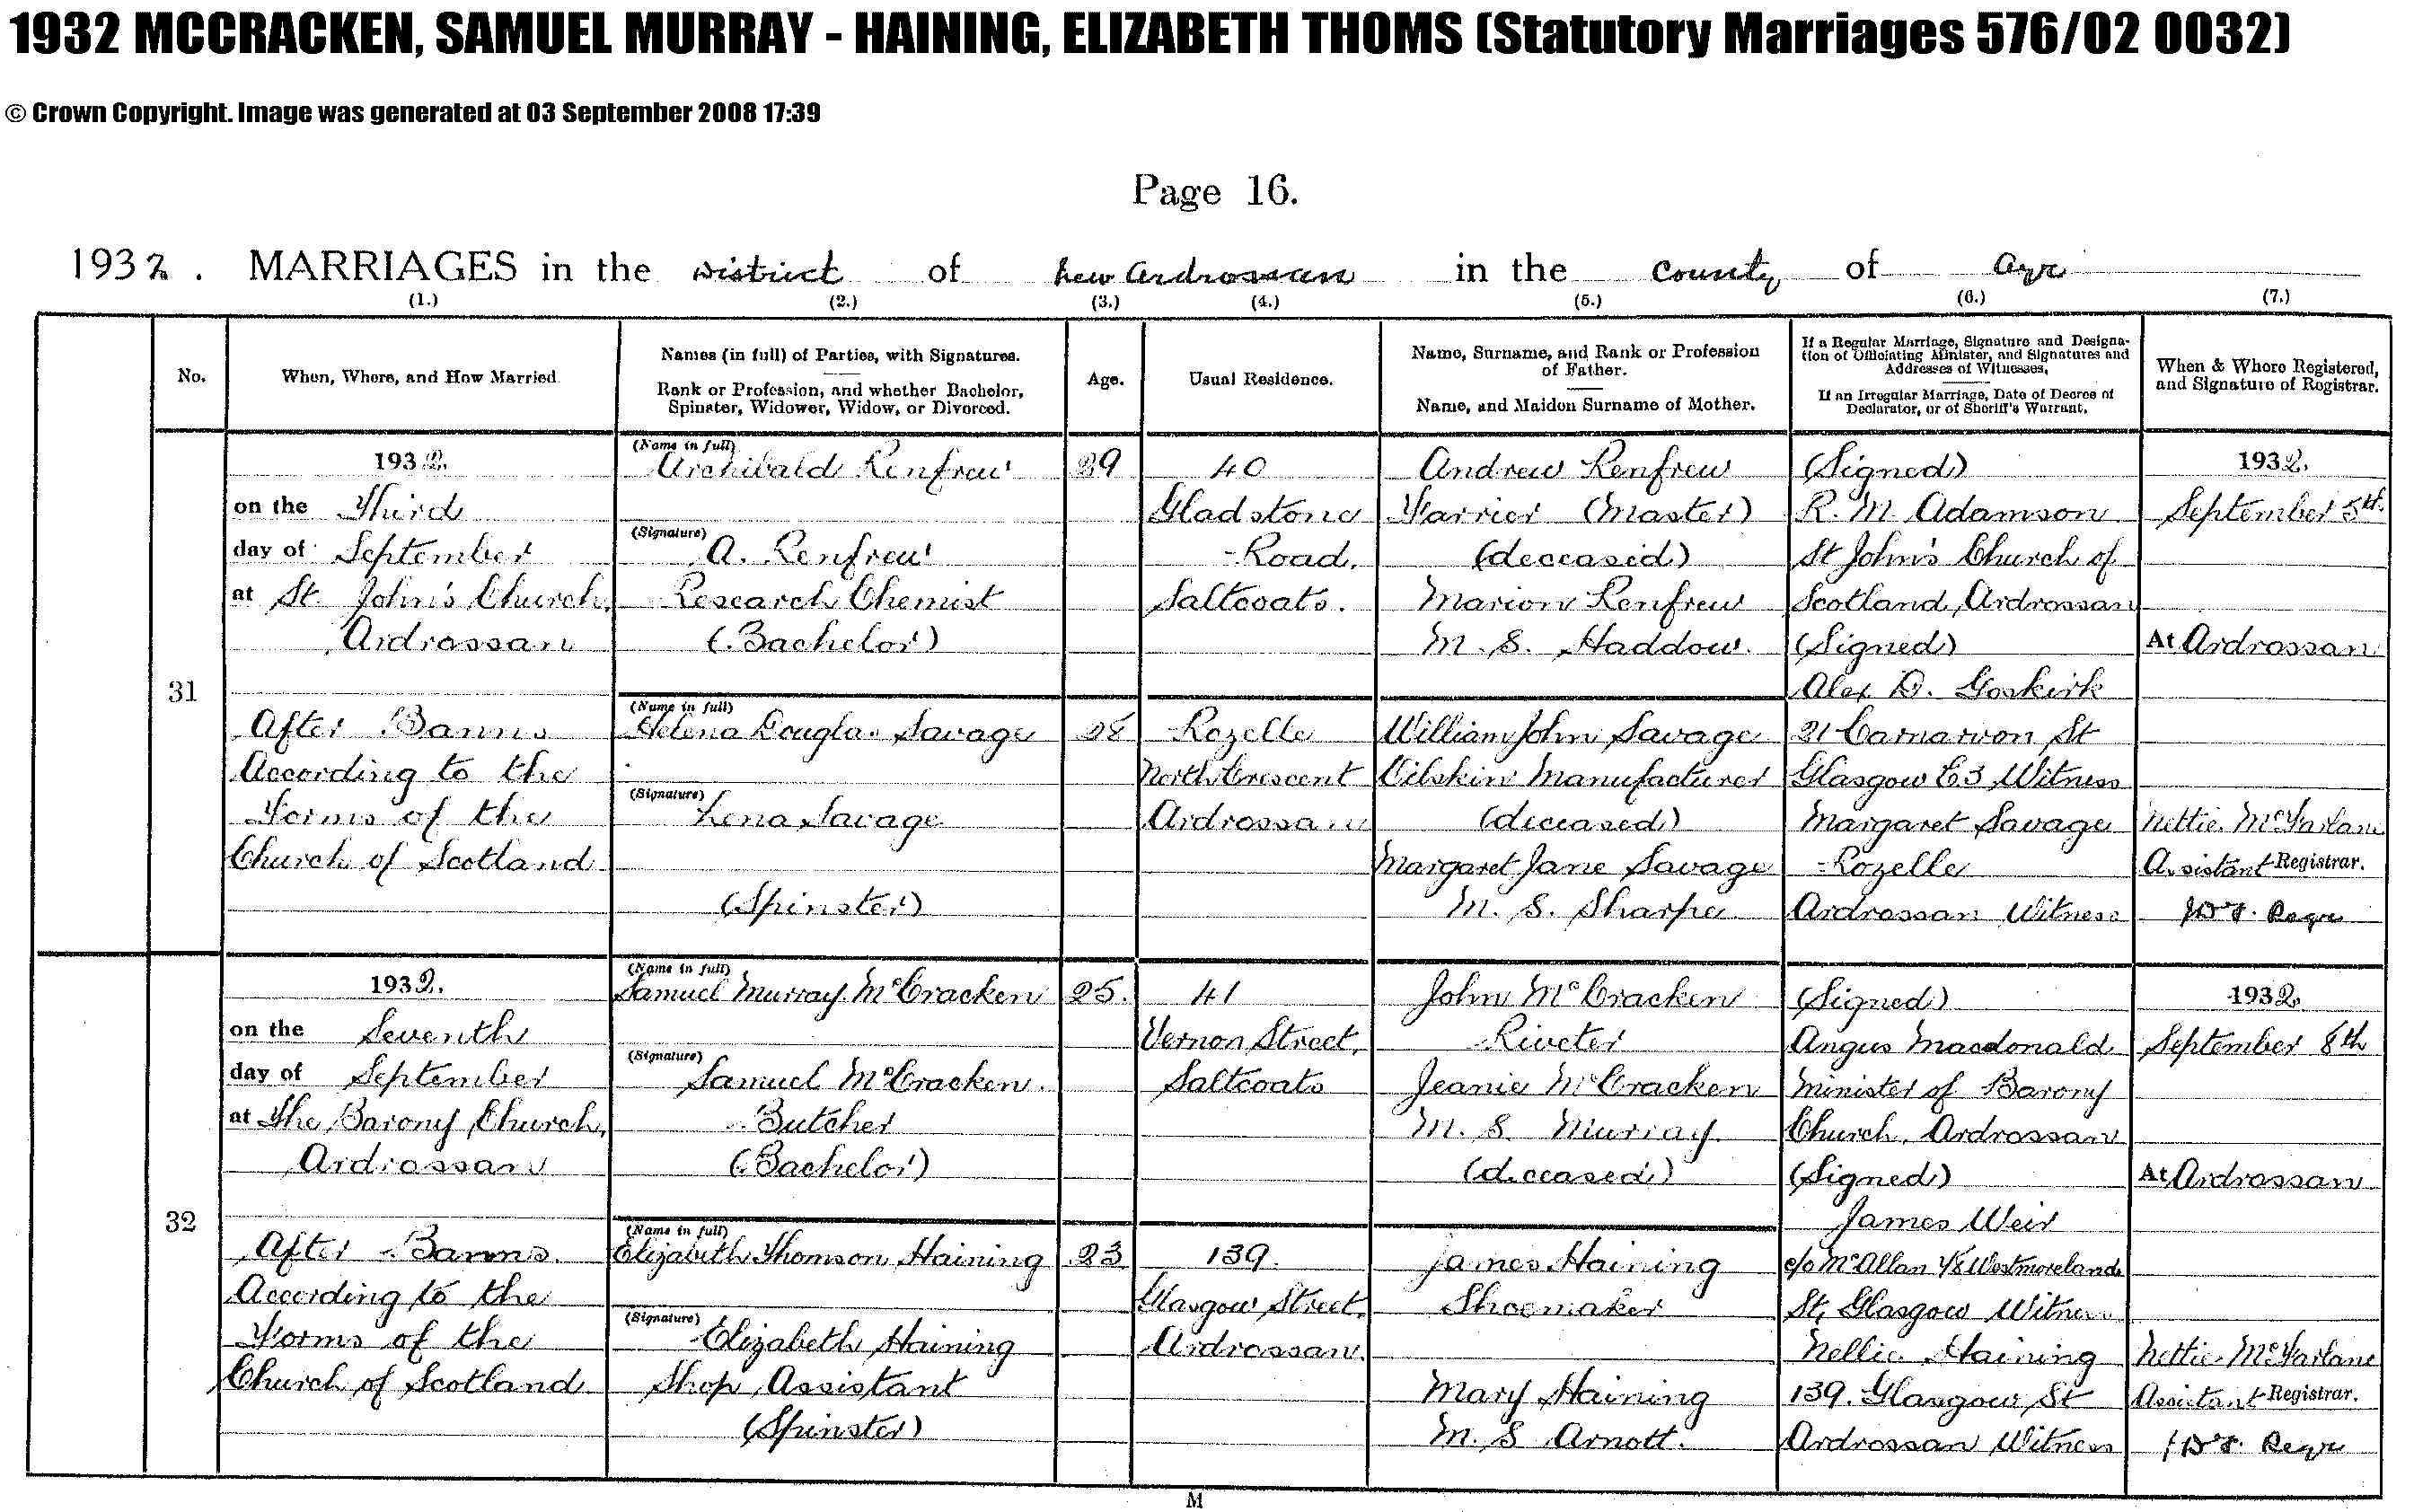 1932 MCCRACKEN, SAMUEL MURRAY - HAINING, ELIZABETH THOMS (Statutory Marriages 576/02 0032)
© Crown Copyright. Image was generated at 03 September 2008 17:39
Page 16.
1932. MARRIAGES in the District of New Ardrossan in the County of Ayr
(1.) (2.) (3.) (4.) (5.) (6.) (7.)
No.
When, Where, and How Married
Names (in full) of Parties, with Signatures.
Rank or Profession, and whether Bachelor,
Spinster, Widower, Widow, or Divorced.
Age.
Usual Residence.
Name, Surname, and Rank or Profession
of Father.
Name, and Maiden Surname of Mother.
If a Regular Marriage, Signature and Designa-
tion of Officiating Minister, and Signatures and
Addresses of Witnesses.
If an Irregular Marriage, Date of Decree of
Declarator, or of Sheriff's Warrant.
When & Where Registered,
and Signature of Registrar.
31
1932.
on the Third
day of September
at St. John's Church,
Ardrossan
After Banns
According to the
Forms of the
Church of Scotland
(Name in full)
Archibald Renfrew
(Signature)
A. Renfrew
Research Chemist
(Bachelor)
(Name in full)
Helena Douglas Savage
(Signature)
Lena Savage
(Spinster)
29
28
40
Gladstone
Road,
Saltcoats.
Rozelle
North Crescent
Ardrossan
Andrew Renfrew
Farrier (Master)
(deceased)
Marion Renfrew
M. S. Haddow.
William John Savage
Oilskin Manufacturer
(deceased)
Margaret Jane Savage
M. S. Sharpe
(Signed)
R. M. Adamson
St John's Church of
Scotland, Ardrossan
(Signed)
Alex D. Goskirk
21 Carnarvon St
Glasgow C3 Witness
Margaret Savage
Rozelle
Ardrossan Witness
1932.
September 5th.
At Ardrossan
Nettie McFarlane
Assistant Registrar.
32
1932.
on the Seventh
day of September
at The Barony Church,
Ardrossan
After Banns.
According to the
Forms of the
Church of Scotland
(Name in full)
Samuel Murray McCracken
(Signature)
Samuel McCracken.
Butcher
(Bachelor)
(Name in full)
Elizabeth Thomson Haining
(Signature)
Elizabeth Haining
Shop Assistant
(Spinster)
25.
23
41
Vernon Street,
Saltcoats
139.
Glasgow Street,
Ardrossan.
John McCracken
Riveter
Jeanie McCracken
M. S. Murray.
(deceased)
James Haining
Shoemaker
Mary Haining
M. S Arnott.
(Signed)
Angus Macdonald
Minister of Barony
Church, Ardrossan
(Signed)
James Weir
c/o McAllan Westmoreland
St, Glasgow Witness
Nellie Haining
139. Glasgow St
Ardrossan Witness
1932.
September 8th
At Ardrossan
Nettie McFarlane
Assistant Registrar.
M